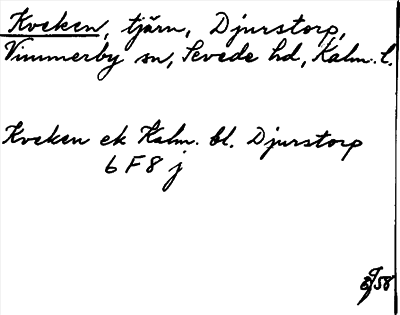 Kveken, tjärn, Djurstorp,
Vimmerby sn, Sevede hd, Kalm. l.
Kveken ek Kalm. bl. Djurstorp
6 F 8 j